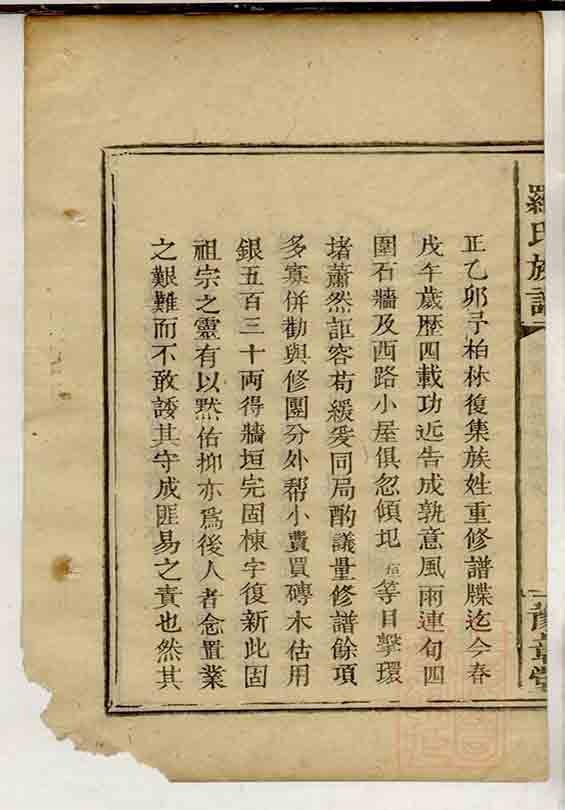 羅氏族譜
豫章堂
正乙卯予柏林復集族姓重修譜牒迄今春
戊午歲歷四載功近告成孰意風雨連旬四
圍石牆及西路小屋俱忽傾圮恒等目擊環
堵蕭然詎容苟緩爰同局酌議量修譜餘項
多寡併勸與修團分外幫小費買磚木估用
銀五百三十両得牆垣完固棟宇復新此固
祖宗之靈有以黙佑抑亦為後人者念置業
之艱難而不敢諉其守成匪易之責也然其